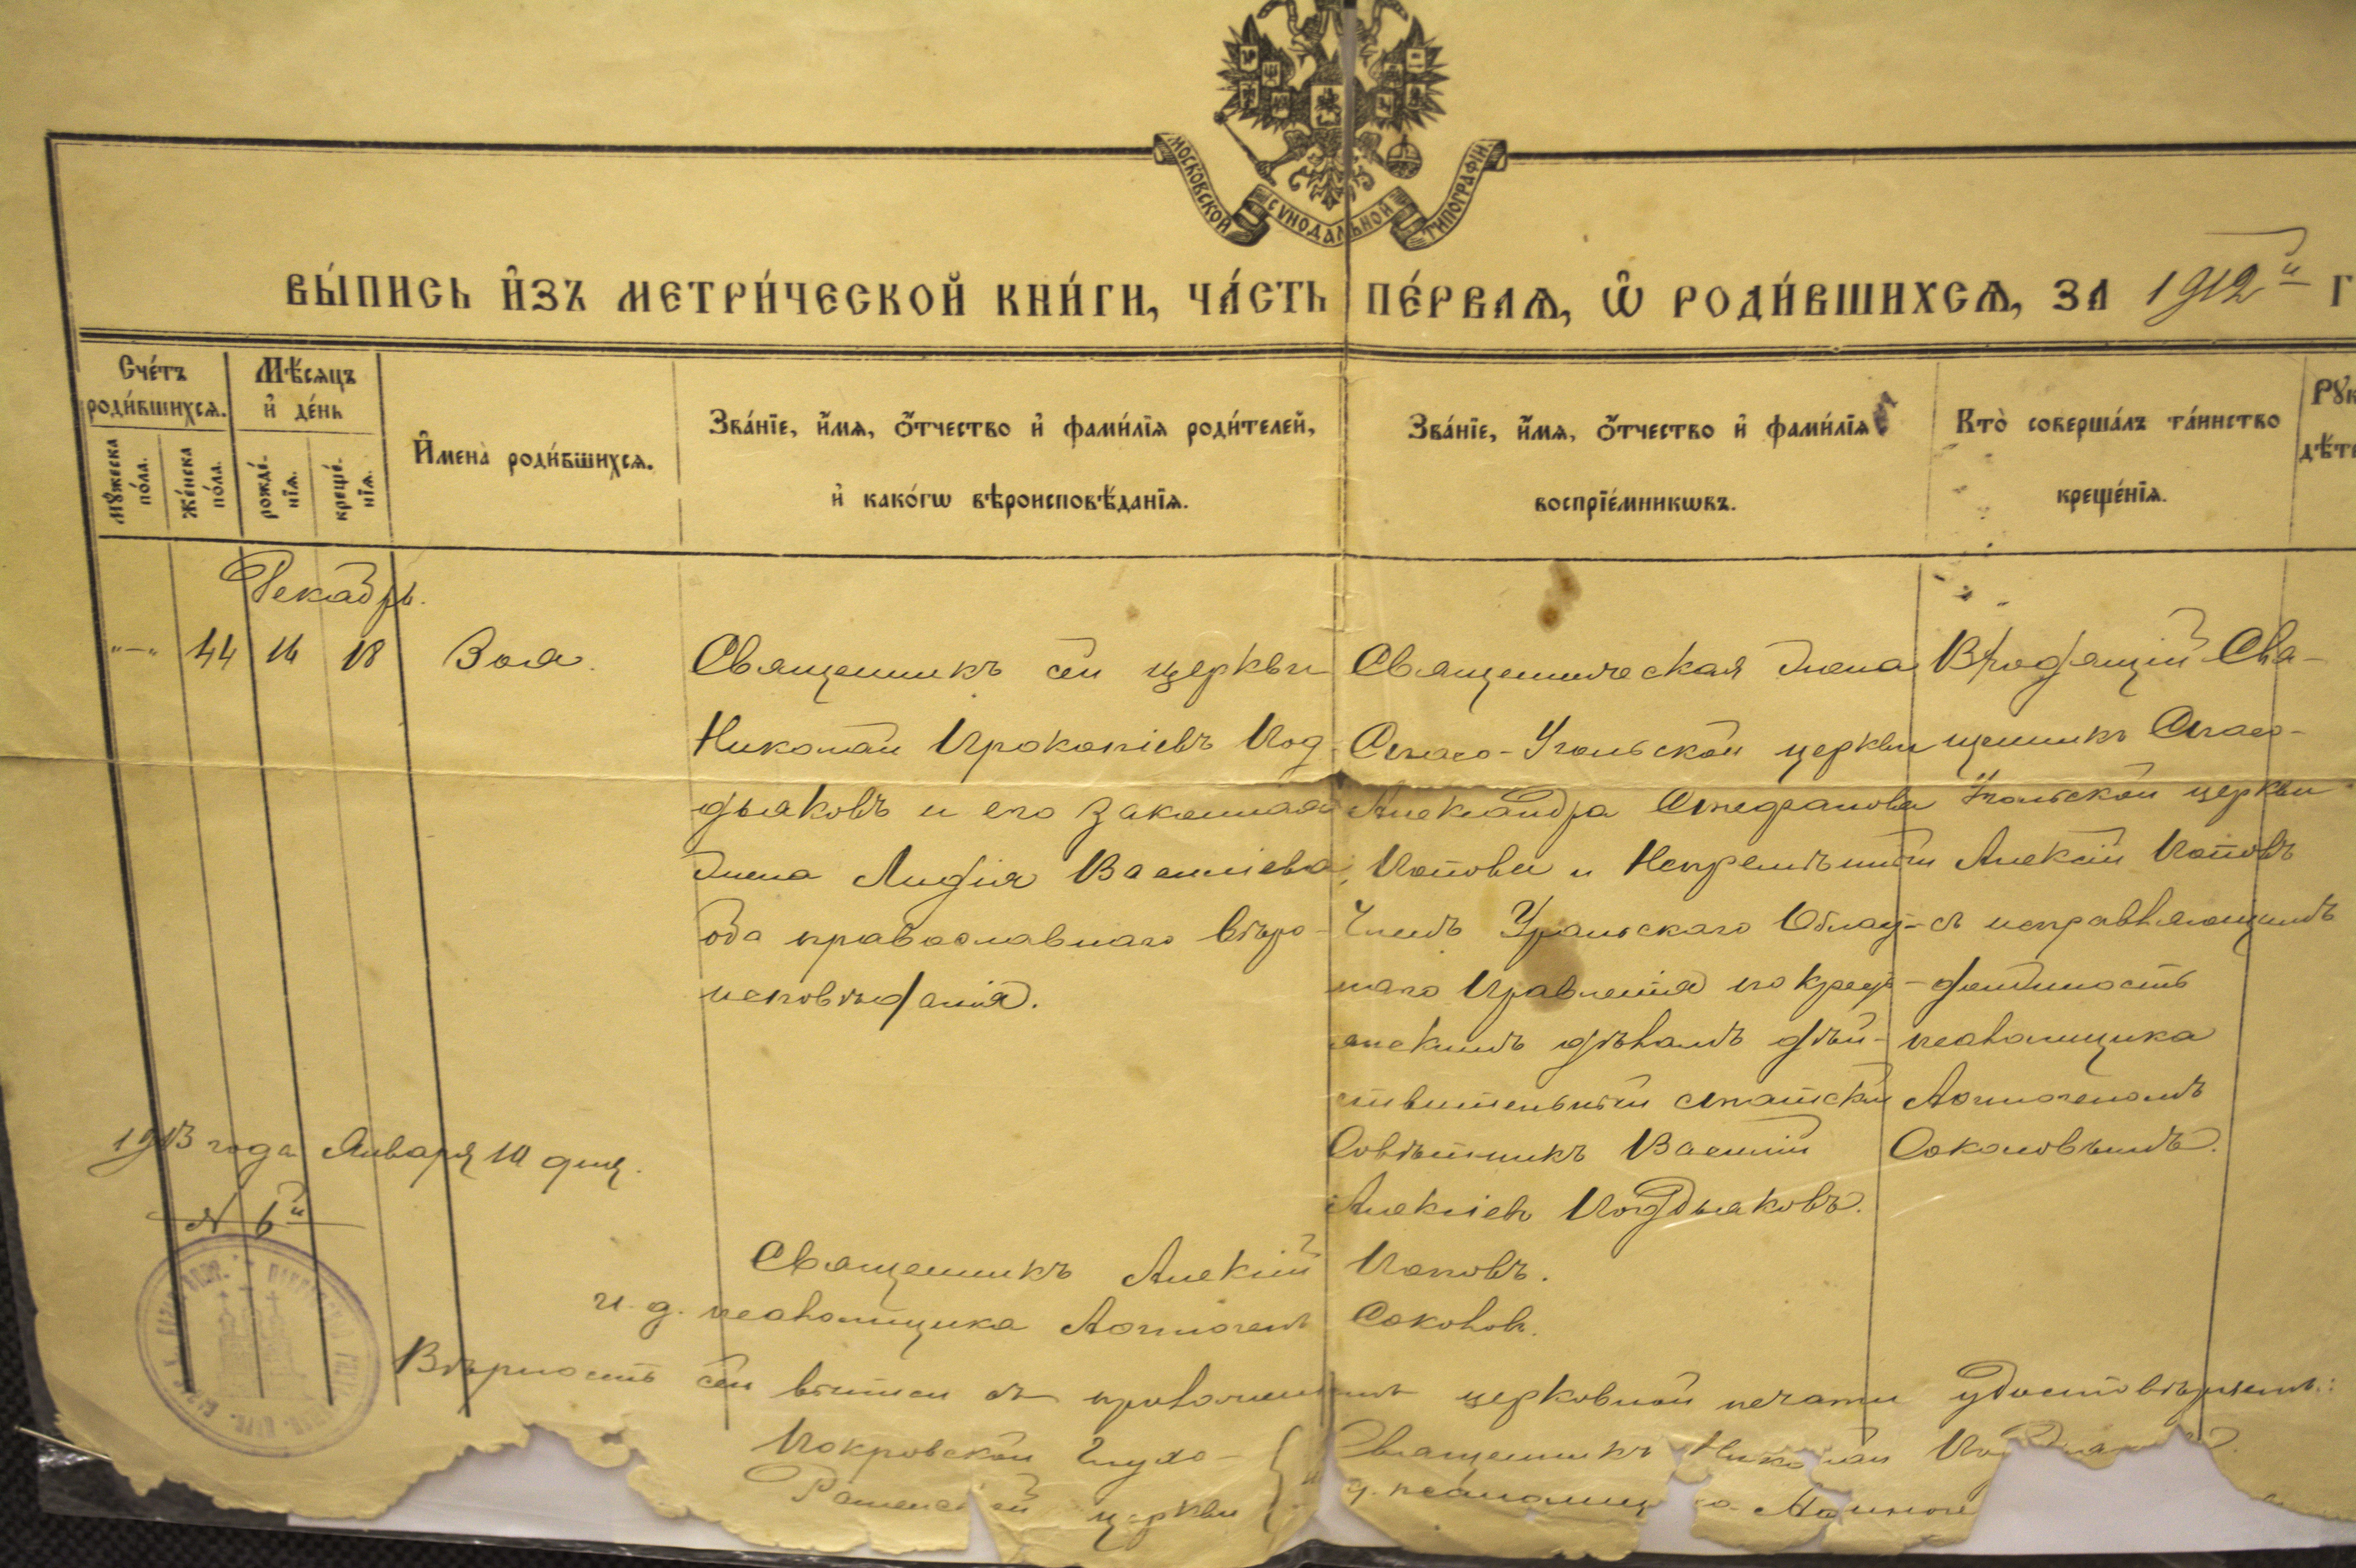 МОСКОВСКОЙ СѴНОДАЛЬНОЙ ТИПОГРАФІИ.
ВЫ́ПИСЬ И҆ЗЪ МЕТРИ́ЧЕСКОЙ КНИ́ГИ, ЧА́СТЬ ПЕ́РВАѦ, Ѡ҆ РОДИ́ВШИХСѦ, ЗА 1912й Г
Сче́тъ роди́вшихсѧ.
Мѣ́сѧцъ и҆ де́нь
мꙋ́жеска по́ла.
же́нска по́ла.
рожде́нїѧ.
креще́нїѧ.
И҆мена̀ роди́вшихсѧ.
Зва́нїе, и҆́мѧ, о҆́тчество и҆ фами́лїѧ роди́телей,
и҆ како́гѡ вѣроисповѣ́данїѧ.
Зва́нїе, и҆́мѧ, о҆́тчество и҆ фами́лїѧ
воспрїе́мникѡвъ.
Кто̀ соверша́лъ та́инство
креще́нїѧ.
Рꙋк
дѣте
Декабрь.
"—" 44 16 18 Зоя.
Священникъ сей церкви
Николай Прокопіевъ Под
дьяковъ и его законная
жена Лидія Васильева,
оба православнаго вѣро-
исповѣданія.
Священническая жена
Спасо-Угольской церкви
Александра Стефанова
Попова и Непремѣнный
Членъ Уральскаго Област-
наго Правленія по кресть-
янскимъ дѣламъ дѣй-
ствительный статскій
Совѣтникъ Василій
Алексіевъ Поддьяковъ.
Приходящій Свя-
щенникъ Спасо-
Угольской церкви
Алексій Поповъ
съ исправляющимъ
должность
псаломщика
Логгиномъ
Соколовымъ.
1913 года Января 10 дня.
№ 6й
Священникъ Алексій Поповъ.
И. д. псаломщика Соколовъ.
Вѣрность сей выписи съ приложеніемъ церковной печати удостовѣряемъ:
Покровской Глухо-
Раменской церкви
Священникъ Николай По
д. псаломщ